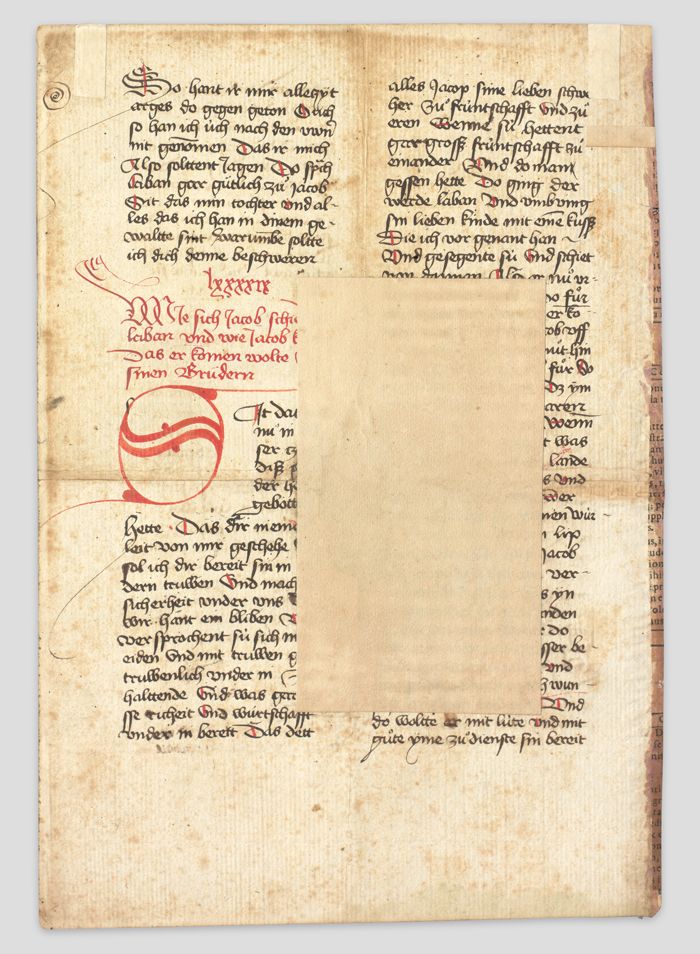 So hant ir mir allegyt
arges do gegen geton Doch
so han ich üch nach den uwrn
nit genomen Das ir mich
Also solttent Jagen Do sp̄ch
laban gar gütlich zů jacob
Sit das min tochter vnd al-
les das ich han in dinem ge-
waltte sint Warumbe soltte
ich dich denne beschweren
lxxxxix
Wie sich Jacob
laban vnd wie Jacob
Das er komen wolte
sinen Brüdern
It
nů in
ser
diß
der
gebott
hette Das dir
keit von mir geschehe
sol ich dir bereit sin in
dern truwen Vnd mach
sicherheit vnder vns
wir hant ein bliben
versprochent sü sich
eiden Vnd mit truwen
truwenlich vnder in
halttende Vnd was
sse richeit Vnd würtschafft
vnder in bereit Das dett
alles Jacop sine lieben schwe
her zů früntschafft Vnd zů
eren Wenne sü hettent
gar groß früntschafft zů
einander Vnd do man
gessen hette Do ging der
werde laban Vnd vmbving
sin lieben kinde mit eine kuss
Die ich vor genant han
Vnd gesegente sü Vnd schiet
von dannen er nů vr-
do für
er ko
cob vff
mit him
für do
dz ym
Wenn
t was
lande
s vnd
nen wür-
lip
Jacob
ver-
s yn
nden
do
sser be
vnd
wun
Vnd
do woltte er mit lüte vnd mit
gůte yme zů dienste sin bereit